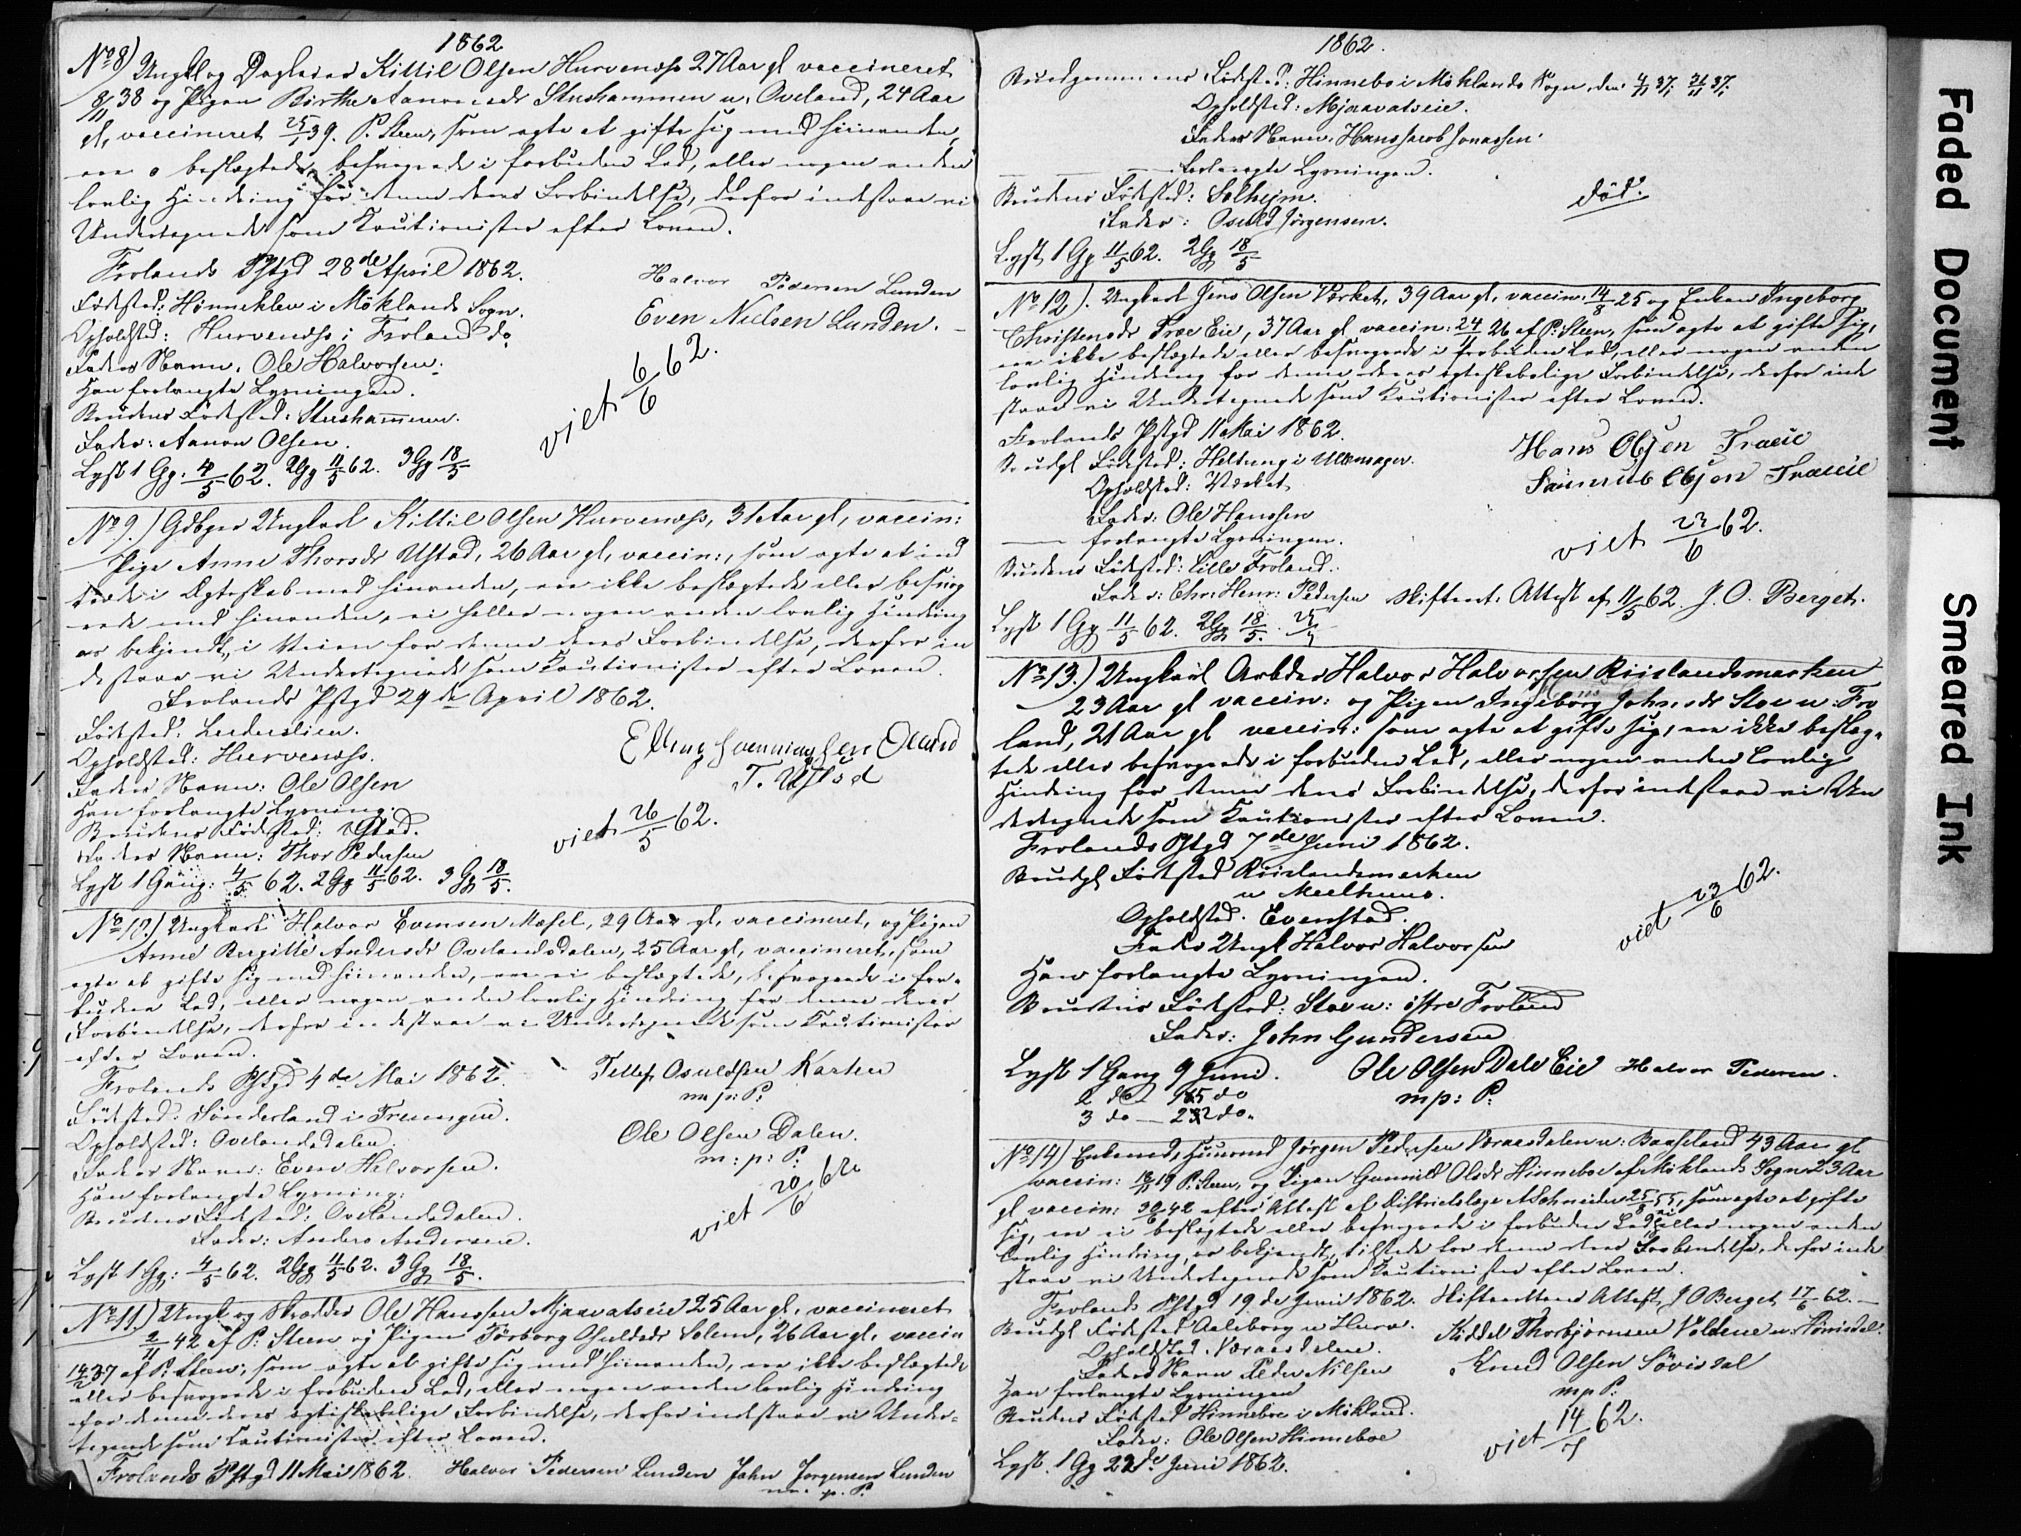 1862
No 8) Ungk og Dagleier Kittil Olsen Hurvenæss 27 Aar gl vaccineret
8/11 38 og Pigen Birthe Aanonsdr Stushammen u. Oveland, 24 Aar
gl, vaccineret 25/1 39. P. Steen, som agte at gifte sig med hinanden,
ere beslægtede, besvogrede i forbuden Led, eller nogen anden
lovlig Hindring for denne deres Forbindelse, derfor indestaae vi
Undertegnede som Kautionister efter Loven.
Frolands Pstgd 28de April 1862.
Halvor Pedersen Lunden
Even Nielsen Lunden.
Fødested: Hinneklev i Möklands Sogn.
Opholdsted: Hurvenæss i Froland do
Faders Navn: Ole Halvorsen.
Han forlangte Lysningen.
Brudens Fødested: Stushammen.
Fader: Aanon Olsen.
Lyst 1 Gg. 4/5 62. 2 Gg 11/5 62. 3 Gg 18/5
viet 6/6 62.
No 9.) Gdbger Ungkarl Kittil Olsen Hurvenæss, 31 Aar gl, vaccin:
Pige Anne Thorsdr Ustad, 26 Aar gl, vaccin:, som agte at ind
træde i Ægteskab med hinanden, ere ikke beslægtede eller besvog
rede med hinanden, ei heller nogen anden lovlig Hindring
er bekjendt, i Veien for denne deres Forbindelse, derfor in
destaae vi Undertegnede som Kautionister efter Loven.
Frolands Pstgd 29de April 1862.
Fødested:
Opholdsted: Hurvenæss.
Faders Navn: Ole Olsen
Han forlangte Lysning.
Brudens Fødested: Ustad.
Faders Navn: Thor Pedersen
T. Ustad
viet 26/5 62.
Lyst 1 Gang: 4/5 62. 2 Gg 11/5 62. 3 Gg 18/5.
No 10.) Ungkarl Halvor Evensen Messel, 29 Aar gl, vaccineret, og Pigen
Anne Bergitte Andersdr Ovelandsdalen, 25 Aar gl, vaccineret, som
agte at gifte sig med hinanden, ere ei beslægtede, besvogrede i for-
buden Led, eller nogen anden lovlig Hindring for denne deres
Forbindelse, derfor indestaae vi Undertegnede som Kautionister
efter Loven.
Frolands Pstgd 4de Mai 1862.
Tellef Osuldsen Karten
m: p: P:
Fødested: Sönderland i Treungen.
Opholdsted: Ovelandsdalen.
Ole Olsen Dalen.
m: p: P:
Faders Navn: Even Halvorsen.
Han forlangte Lysning.
Brudens Fødested: Ovelandsdalen.
Fader: Anders Andersen.
viet 20/6 62
Lyst 1 Gg: 4/5 62. 2 Gg 11/5 62. 3 Gg 18/5.
No 11.) Ungk og Skrædder Ole Hanssen Mjaavatseie 25 Aar gl, vaccineret
2/11 42 af P: Steen og Pigen Torborg Osuldsdr Solem, 26 Aar gl, vaccin
14/2 37 af P: Steen, som agte at gifte sig med hinanden, ere ikke beslægtede
eller besvogrede i forbuden Led, eller nogen anden lovlig Hindring
for denne deres ægteskabelige Forbindelse, derfor indestaae vi Under-
tegnede som Kautionister efter Loven.
Frolands Pstgd 11 Mai 1862. Halvor Pedersen Lunden John Jørgensen Lunden
m. p. P.
1862.
Brudgommens Fødested: Hinneboe i Möklands Sogn, den 4/11 37,
Opholdsted: Mjaavatseie.
Faders Navn: Hans Jacob Jonassen.
forlangte Lysningen.
Brudens Fødested: Solhejm.
død.
Fader: Osuld Jørgensen.
Lyst 1 Gg 11/5 62. 2 Gg 18/5
No 12.) Ungkarl Jens Olsen Værket, 39 Aar gl, vaccin: 14/8 25 og Enken Ingeborg
Christensdr Træe Eie, 37 Aar gl vaccin: 24/11 26 af P: Steen, som agte at gifte sig,
ere ikke beslægtede eller besvogrede i forbuden Led, eller nogen anden
lovlig Hindring for denne deres ægteskabelige Forbindelse, derfor inde
staae vi Undertegnede som Kautionister efter Loven.
Frolands Pstgd 11 Mai 1862.
Hans Olsen Traeie
Brudgl Fødested: Heltung i Ullensager.
Opholdsted: Værket
Fader: Ole Hanssen
forlangte Lysningen.
viet 23/6 62.
Brudens Fødested: Lille Froland.
Fader: Chr: Henr: Pedersen Skifteret: Attest af 11/5 62. J. O. Berget.
Lyst 1 Gg 11/5 62. 2 Gg 18/5.
No 13.) Ungkarl Arbder Halvor Halvorsen Riislandsmarken
23 Aar gl vaccin: og Pigen Ingeborg Johnsdr Stoe u: Fro
land, 21 Aar gl vaccin: som agte at gifte sig, ere ikke beslæg-
tede eller besvogrede i forbuden Led, eller nogen anden lovlig
Hindring for denne deres Forbindelse, derfor indestaae vi Un
dertegnede som Kautionister efter Loven.
Frolands Pstgd 7de Juni 1862.
Brudgl Fødested Riislandsmarken
u
Opholdsted: Evenstad.
Fader Ungk Halvor Halvorsen
viet 23/6 62.
Han forlangte Lysningen.
Brudens Fødested: Stoe u: östre Froland
Fader: John Gundersen
Lyst 1 Gang 9 Juni. Ole Olsen Dale Eie Halvor Pedersen.
2 do 15 do mp: P:
3 do — 22 do.
No 14) Enkemd, Huusmd Jørgen Pedersen Braasdalen u: Baaseland 43 Aar gl
vaccin: 19 P. Steen, og Pigen Gunnild Olsdr Hinneboe af Möklands Sogn 23 Aar
gl vaccin: 30/6 42 efter Attest af Districtslæge A Schneider 25/8 55, som agte at gifte
sig, ere ei beslægtede eller besvogrede i forbuden Led, ei eller nogen anden
lovlig Hindring, er bekjendt, tilstede for denne deres Forbindelse, derfor inde
staae vi Undertegnede som Kautionister efter Loven.
Frolands Pstgd 19de Juni 1862. Skifterettens Attest, J O Berget 17/6 62.
Brudgl Fødested Aaleborg u Hurv.
Opholdsted. Braasdalen.
Faders Navn Peder Nilsen
Knud Olsen Sövisdal
mp P:
Han forlangte Lysningen
Brudens Fødested Hinneboe i Mökland.
Fader: Ole Olsen Hinneboe
viet 14/7 62.
Lyst. 1 Gg 22de Juni 1862.
Faded Document
Smeared Ink